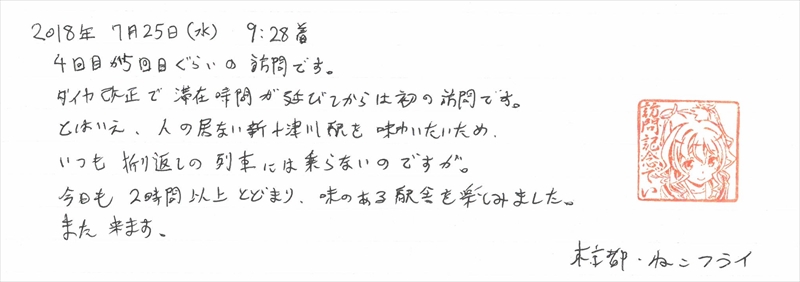 2018年 7月25日(水) 9:28着
4回目か5回目ぐらいの訪問です。
ダイヤ改正で滞在時間が延びてからは初の訪問です。
とはいえ、人の居ない新十津川駅を味わいたいため、
いつも折り返しの列車には乗らないのですが。
今日も2時間以上とどまり、味のある駅舎を楽しみました。
また来ます。
訪問記念でい
京都・ねこフライ